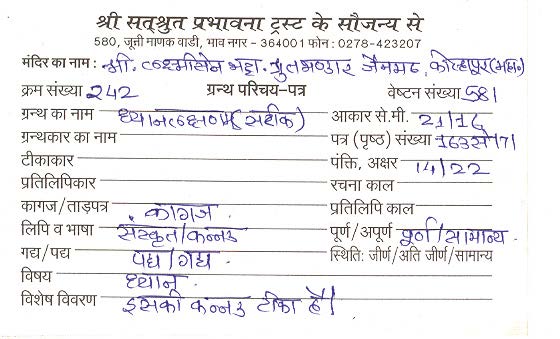 श्री सत्श्रुत प्रभावना ट्रस्ट के सौजन्य से
580, जूनी माणक वाडी, भाव नगर - 364001 फोन : 0278-423207
मंदिर का नाम : श्री. लक्ष्मीसेन भट्टा. श्रुतभण्डार जैनमठ, कोल्हापुर (महा.)
क्रम संख्या 242 ग्रन्थ परिचय-पत्र वेष्टन संख्या 581
ग्रन्थ का नाम ध्यानलक्षणम् (सटीक) आकार से.मी. 21/16
ग्रन्थकार का नाम पत्र (पृष्ठ) संख्या 163से171
टीकाकार पंक्ति, अक्षर 14/22
प्रतिलिपिकार रचना काल
कागज/ताड़पत्र कागज. प्रतिलिपि काल
लिपि व भाषा संस्कृत/कन्नड पूर्ण/अपूर्ण पूर्ण/सामान्य.
गद्य/पद्य पद्य/गद्य स्थिति: जीर्ण/अति जीर्ण/सामान्य
विषय ध्यान.
विशेष विवरण इसकी कन्नड टीका है।